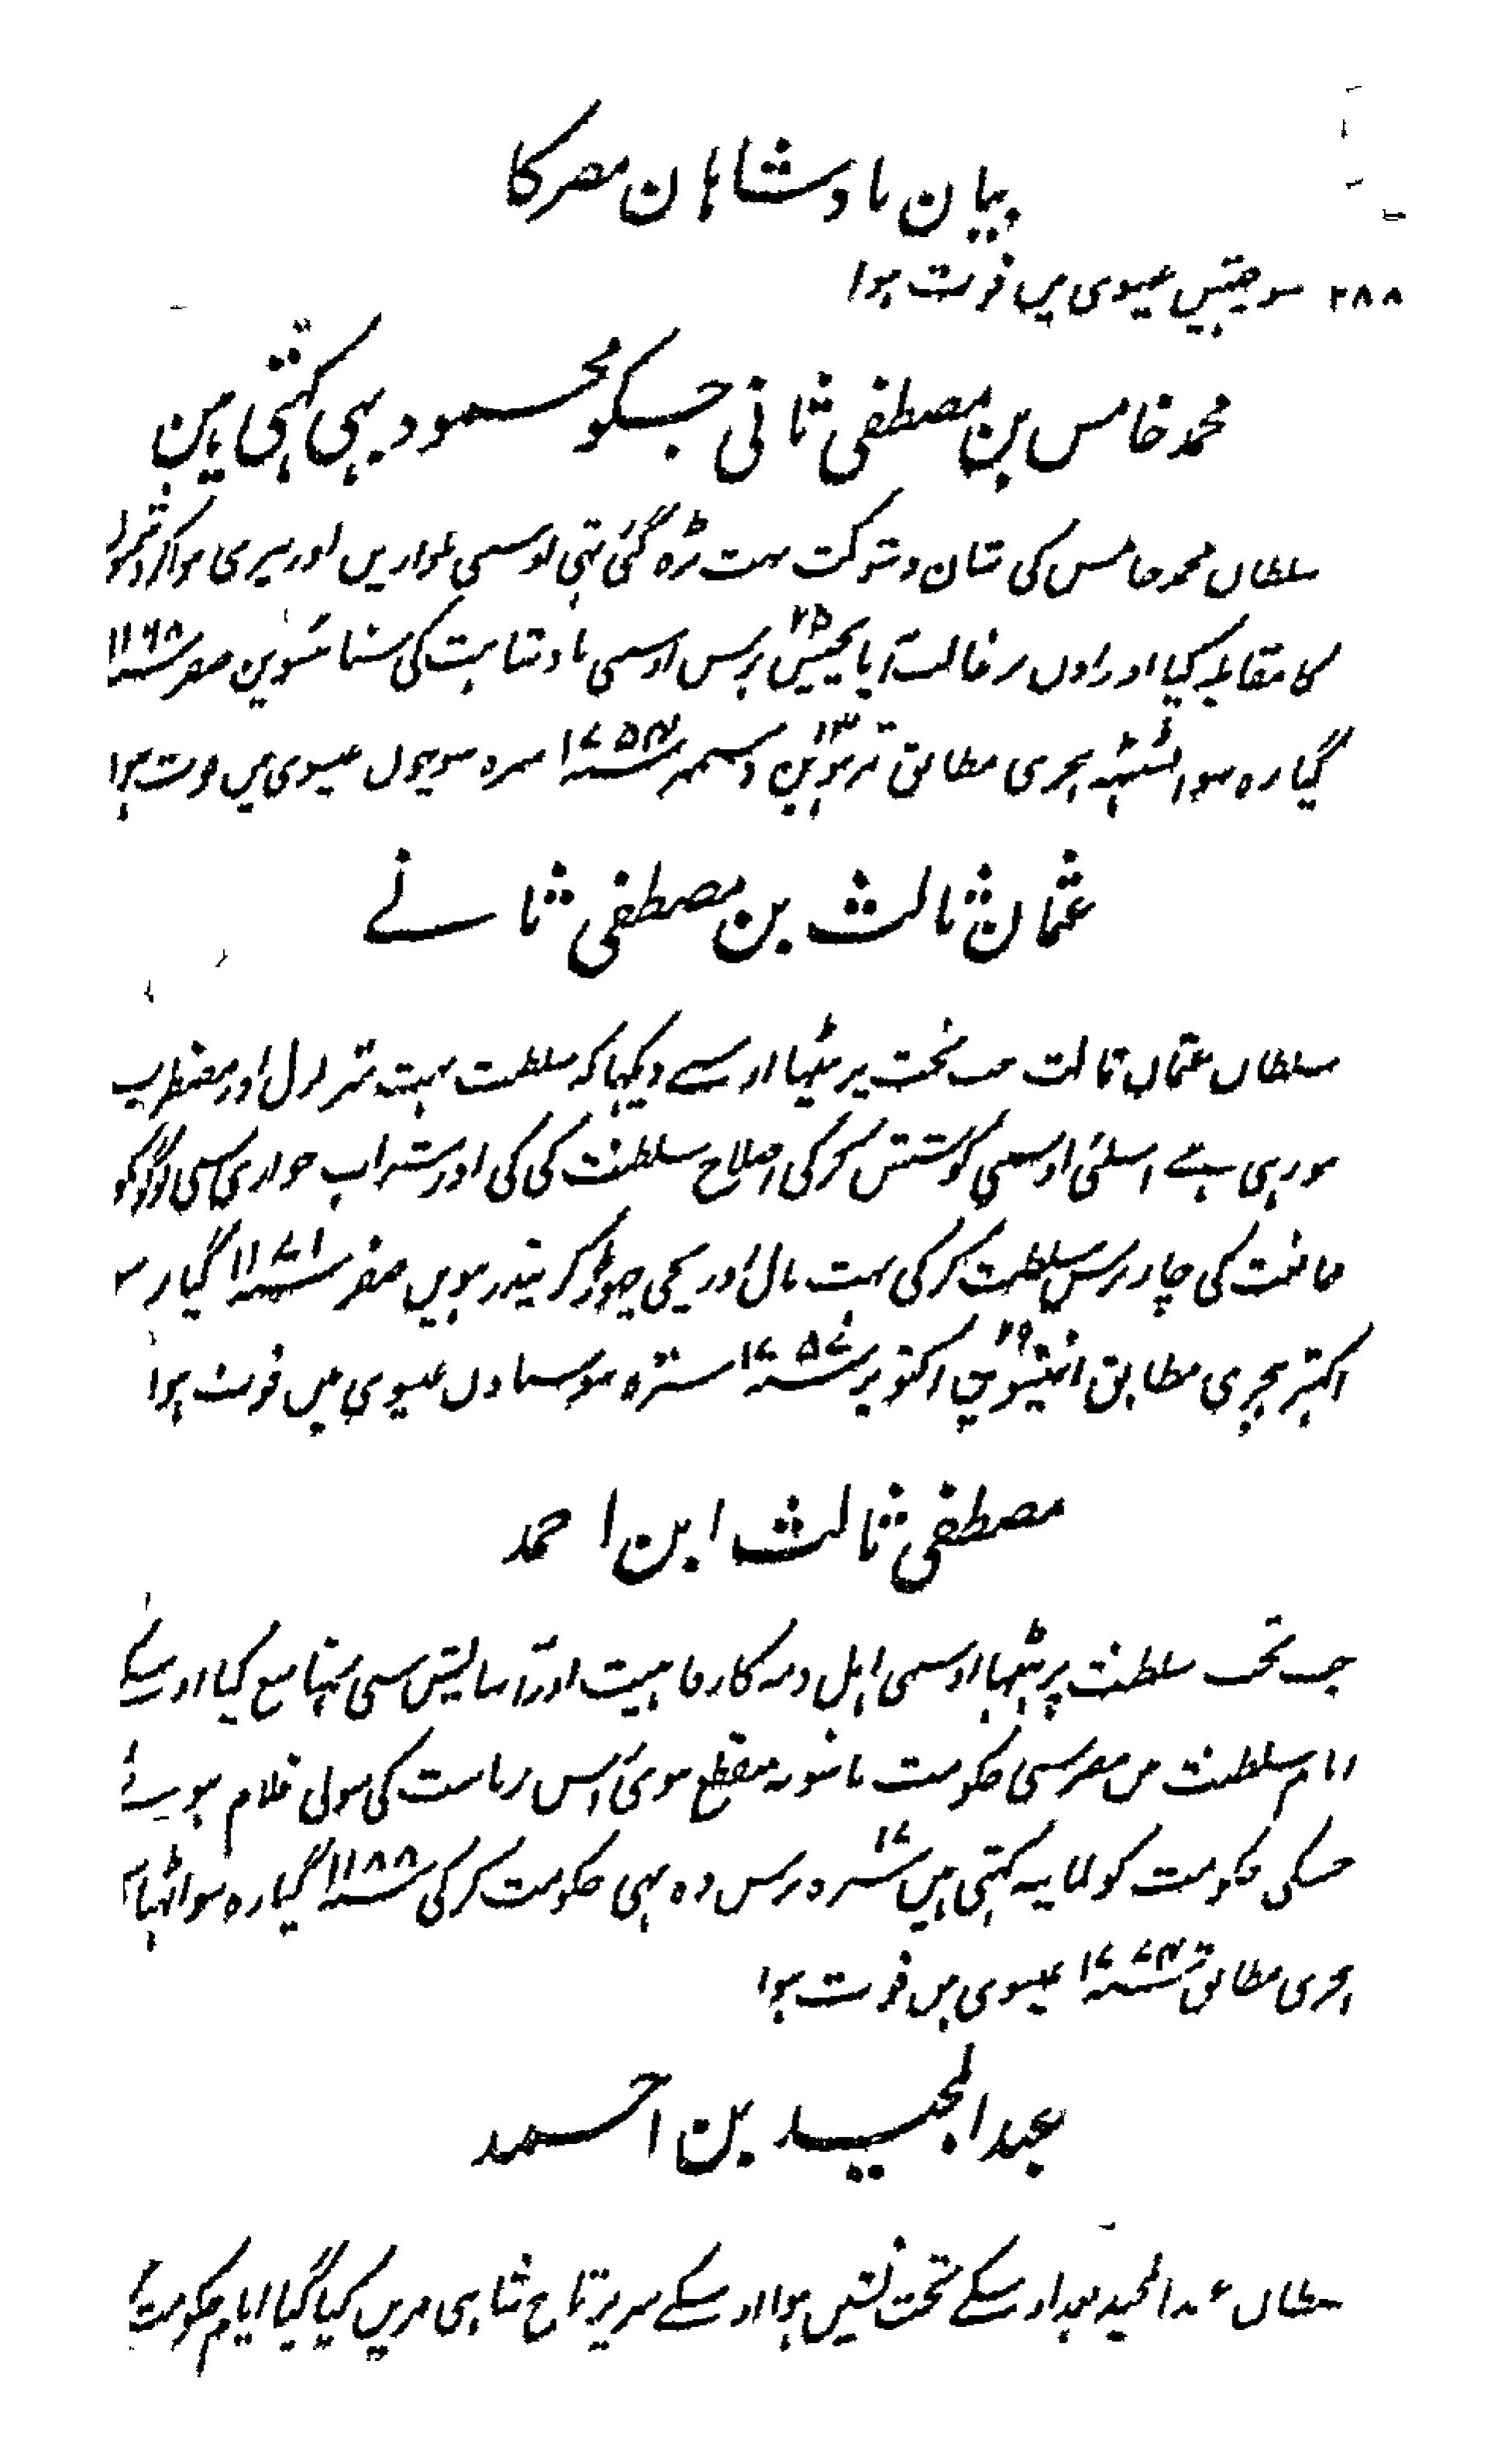 بیان بادشاہان مصر کا
۲۸۸ سو چھتیس عیسوی میں فوت ہوا
محمد خامس بن مصطفی ثانی جسکو محمود بہی کہتی ہین
سلطان محمد خامس کی شان و شوکت بہت بڑہ گئی تہی اوسی اواریں اور
کا مقابلہ کیا اور اون پر غالب آیا پچیس ۲۵ برس اوسی بادشاہت کی ستائسوین صفر سنہ ۱۱۶۸
گیارہ سو اٹسٹہ ہجری مطابق تیرہوین ۱۳ دسمبر سنہ ۱۷۵۴ سترہ سو چون عیسوی میں فوت ہوا
عثمان ثالث بن مصطفی ثانے
سلطان عثمان ثالث جب تخت پر بیٹہا اوسے دیکہا کہ سلطنت بہت متزلزل اور مضطرب
ہو رہی ہے اسلئی اوسی کوشش کر کی اصلاح سلطنت کی کی اور شراب خواری سی لوگوکو
ممانعت کی چار برس سلطنت کر کی بہت مال اور بچی چہوڑ کر پندرہویں صفر سنہ ۱۱۷۱ گیارہ
اکہتر ہجری مطابق انتیسویں ۲۹ اکتوبر سنہ ۱۷۵۷ سترہ سو ستاون عیسوی میں فوت ہوا
مصطفی ثالث ابن احمد
جب تخت سلطنت پر بیٹہا اوسی اہل ذمہ کا رفاہیت اور آسایش سی منع کیا اوسکے
ایام سلطنت میں مصر سی حکومت منقطع ہوئی اس ریاست کی مولی غلام ہوئے
جسکی حکومت کو کہتی ہیں سترہ ۱۷ برس وہ بہی حکومت کر کی سنہ ۱۱۸۸ گیارہ سو اٹہاسی
ہجری مطابق سنہ ۱۷۷۴ عیسوی میں فوت ہوا
عبد المجید بن احمد
سلطان عبد المجید بعد اوسکے تخت نشین ہوا اوسکے سر پر تاج شاہی مزین کیا گیا ایام حکومت